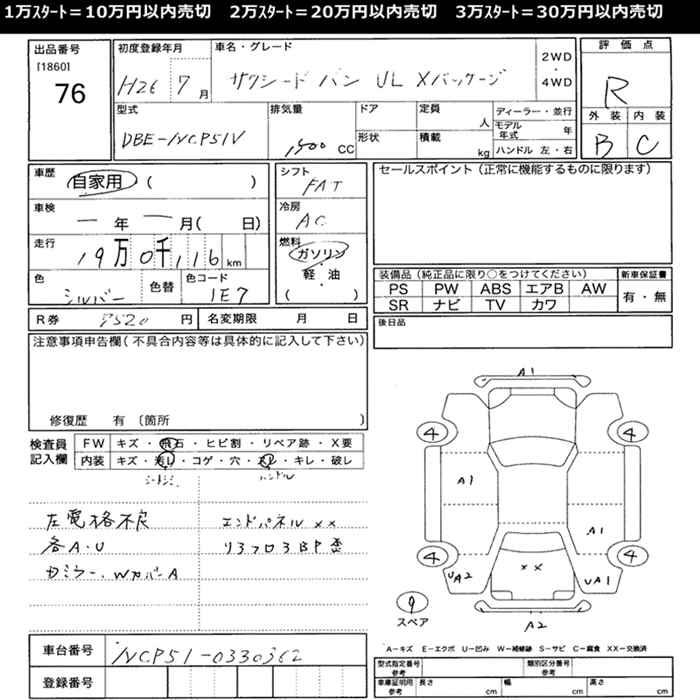 1万スタート＝10万円以内売切　2万スタート＝20万円以内売切　3万スタート＝30万円以内売切
出品番号
[1860]
76
初度登録年月
H26 7月
車名・グレード
サクシード バン UL Xパッケージ
2WD
・
4WD
評価点
R
外装 内装
B C
型式
DBE-NCP51V
排気量
1500 CC
ドア
形状
定員
人
積載
kg
ディーラー・並行
モデル年式 年
ハンドル 左・右
車歴
自家用 ( )
車検
一 年 一 月( 日)
走行
19万0千116km
色
シルバー
色替
色コード
1E7
シフト
FAT
冷房
AC
燃料
ガソリン
軽・油
( )
セールスポイント（正常に機能するものに限ります）
装備品（純正品に限り○をつけてください）
PS PW ABS エアB AW
SR ナビ TV カワ
新車保証書
有・無
R券 9520 円
名変期限 月 日
後日品
注意事項申告欄（不具合内容等は具体的に記入して下さい）
修復歴 有〔箇所 〕
検査員記入欄
FW キズ・飛石・ヒビ割・リペア跡・X要
内装 キズ・汚レ・コゲ・穴・スレ・キレ・破レ
ハンドル
左電格不良
各A・U
エンドパネル XX
リヌフロ3BP歪
車台番号
NCP51-0330362
登録番号
A1
4
4
A1
A1
4
4
UA2
XX
UA1
9
スペア
A2
A-キズ E-エクボ U-凹み W-補修跡 S-サビ C-腐食 XX-交換済
型式指定番号
参考
類別区分番号
参考
車庫証明用
参考
長さ cm
幅 cm
高さ cm